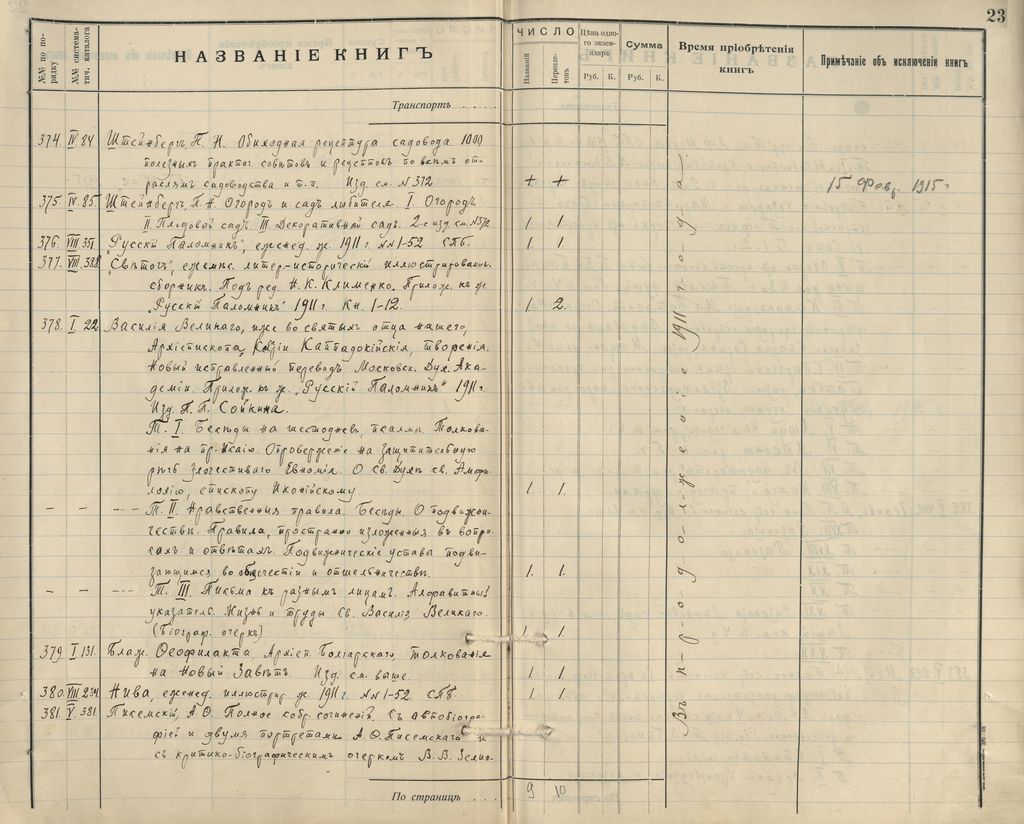 23
№№ по порядку
№№ система-тич. каталога
НАЗВАНІЕ КНИГЪ
ЧИСЛО
Названій
Переплетовъ
Цѣна одного экземпляра
Руб. К.
Сумма
Руб. К.
Время пріобрѣтенія книгъ
Примѣчаніе объ исключеніи книгъ
Транспортъ . . . .
374. IV 84. Штейнбергъ, П. Н. Обиходная рецептура садовода 1000
полезныхъ практич. совѣтовъ и рецептовъ по всѣмъ от-
раслямъ садоводства и т. п. Изд. см. N 372 + + 15 Февр. 1915 г.
375. IV 85. Штейнбергъ, П. Н. Огородъ и садъ любителя. I. Огородъ
II. Плодовый садъ. III. Декоративный садъ. 2-е изд. см. N 372 1. 1.
376. VIII 351. "Русскій Паломникъ", еженед. ж. 1911 г. NN 1-52 СПб. 1. 1.
377. VIII. 388. "Свѣточъ", ежемѣс. литер-историческій иллюстрированъ.
сборникъ. Подъ ред. Н. К. Клименко. Прилож. къ ж.
"Русскій Паломникъ" 1911 г. Кн. 1-12. 1. 2.
378. I. 22. Василія Великаго, иже во святыхъ отца нашего,
Архіепископа Кесаріи Каппадокійскія, творенія.
Новый исправленный переводъ Московск. Дух. Ака-
деміи. Прилож. къ ж. "Русскій Паломникъ" 1911 г.
Изд. П. П. Сойкина.
Т. I. Бесѣды на шестодневъ, псалмы. Толкова-
нія на пр. Исаію. Опроверженіе на защитительную
рѣчь злочестиваго Евномія. О Св. Духѣ къ св. Амфи-
лохію, епископу Иконійскому. 1. 1.
– – – Т. II. Нравственныя правила. Бесѣды. О подвижни-
чествѣ. Правила, пространно изложенныя въ вопро-
сахъ и отвѣтахъ. Подвижническіе уставы подви-
зающимся во общежитіи и отшельничествѣ. 1. 1.
– – – Т. III. Письма къ разнымъ лицамъ. Алфавитный
указатель. Жизнь и труды Св. Василія Великаго.
(Біограф. очеркъ) 1. 1.
379. I. 131. Блаж. Ѳеофилакта, Архіеп. Болгарскаго, Толкованія
на Новый Завѣтъ. Изд. см. выше. 1. 1.
380. VIII 234. Нива, еженед. иллюстрир. ж. 1911 г. NN 1-52. СПб 1. 1.
381. V. 381. Писемскій, А. Ѳ. Полное собр. сочиненій. Съ автобіогра-
фіей и двумя портретами А. Ѳ. Писемскаго и
съ критико-біографическимъ очеркомъ В. В. Зелин-
Въ продолженіе 1911 года
По страницъ . . . 9 10